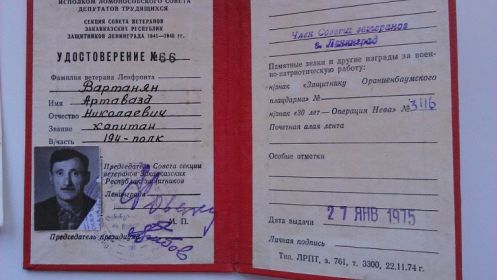 ИСПОЛКОМ ЛОМОНОСОВСКОГО СОВЕТА
ДЕПУТАТОВ ТРУДЯЩИХСЯ
СЕКЦИЯ СОВЕТА ВЕТЕРАНОВ
ЗАКАВКАЗСКИХ РЕСПУБЛИК
ЗАЩИТНИКОВ ЛЕНИНГРАДА 1941—1945 гг.
УДОСТОВЕРЕНИЕ №66
Фамилия ветерана Ленфронта
Вартанян
Имя Артавазд
Отчество Николаевич
Звание капитан
В/часть 194-полк
Председатель Совета секции
ветеранов Закавказских
Республик защитников
Ленинграда
М. П.
Председатель президиума
Член Совета ветеранов
г. Ленинград
Памятные знаки и другие награды за воен-
но-патриотическую работу:
н/знак «Защитнику Ораниенбаумского
плацдарма» №
н/знак «30 лет — Операция Нева» №3116
Почетная алая лента
Особые отметки
Дата выдачи 27 ЯНВ 1975
Личная подпись
Тип. ЛРПГ, з. 761, т. 3300, 22.11.74 г.